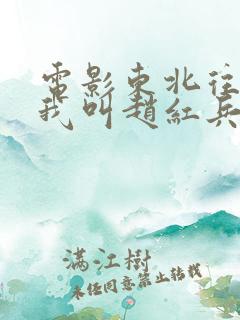 電影東北往
我叫趙紅兵
滿江樹
未經同意禁止轉載